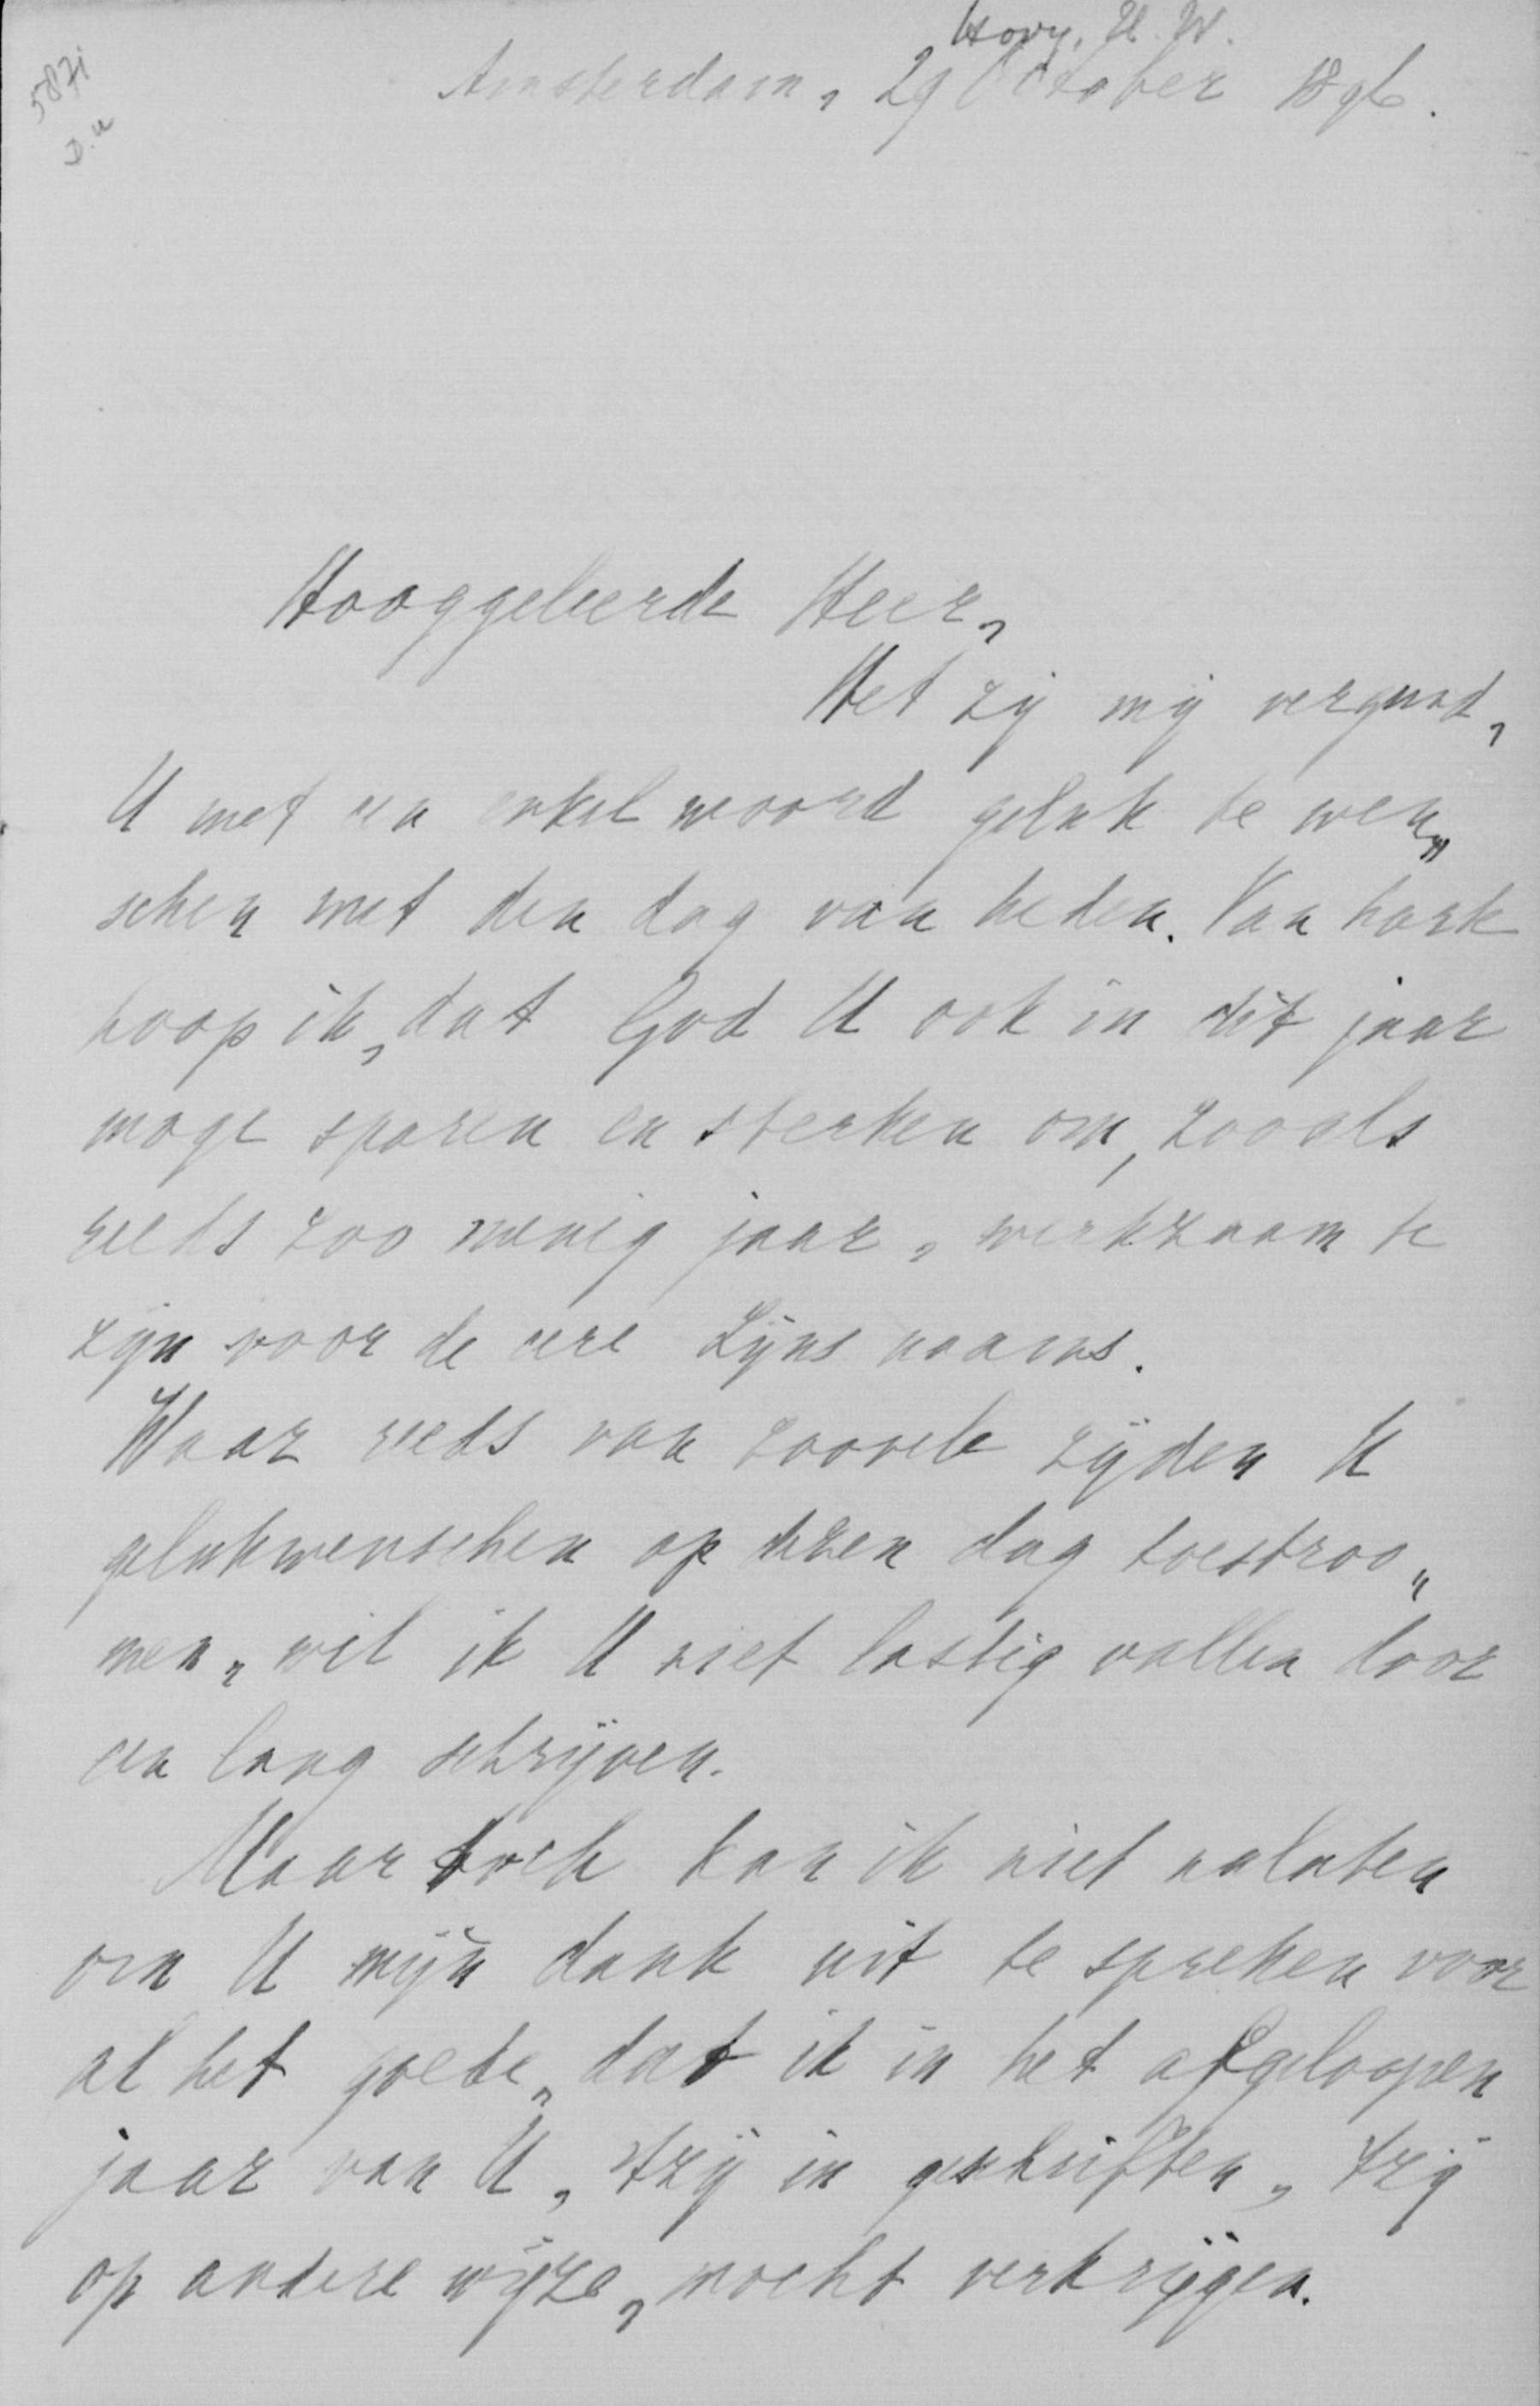 Hovy, H. W.
5871
D. u
Amsterdam, 29 October 1896.
Hooggeleerde Heer,
Het zij mij vergund,
U met een enkel woord geluk te wen„
schen met den dag van heden. Van harte
hoop ik, dat God U ook in dit jaar
moge sparen en sterken om, zooals
reeds zoo menig jaar, werkzaam te
zijn voor de eere Zijns naams.
Waar reeds van zoovele zijden U
gelukwenschen op dezen dag toestroo„
men, wil ik U niet lastig vallen door
een lang schrijven.
Maar toch kan ik niet nalaten
om U mijn dank uit te spreken voor
al het goede, dat ik in het afgeloopen
jaar van U, 'tzij in geschriften, 'tzij
op andere wijze, mocht verkrijgen.